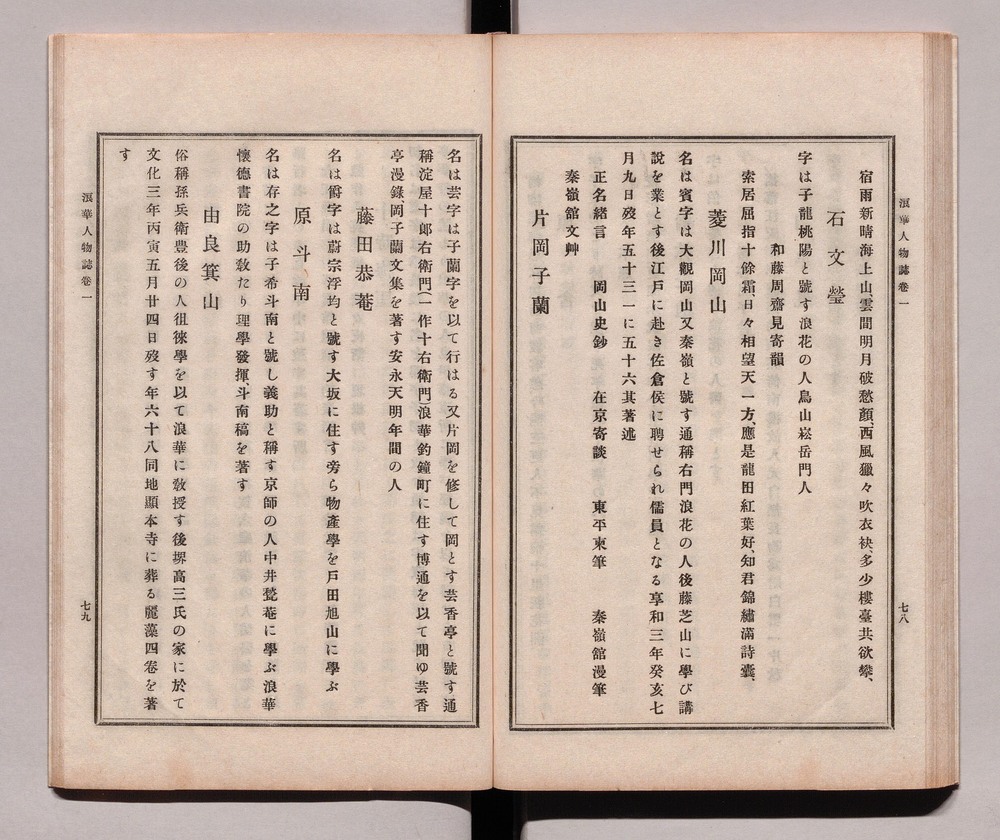 浪華人物誌卷一
七八
宿雨新晴海上山、雲間明月破愁顏、西風獵々吹衣袂、多少樓臺共欲攀、
石文瑩
字は子龍桃陽と號す浪花の人鳥山崧岳門人
和藤周齋見寄韻
索居屈指十餘霜、日々相望天一方、應是龍田紅葉好、知君錦繡滿詩囊、
菱川岡山
名は賓字は大觀岡山又秦嶺と號す通稱右門浪花の人後藤芝山に學び講
說を業とす後江戸に赴き佐倉侯に聘せられ儒員となる享和三年癸亥七
月九日歿年五十三一に五十六其著述
正名緒言　岡山史鈔　在京寄談　東平柬筆　秦嶺館漫筆
秦嶺館文艸
片岡子蘭
名は芸字は子蘭字を以て行はる又片岡を修して岡とす芸香亭と號す通
稱淀屋十郎右衛門(一作十右衛門)浪華釣鐘町に住す博通を以て聞ゆ芸香
亭漫錄岡子蘭文集を著す安永天明年間の人
藤田恭菴
名は爵字は蔚宗浮均と號す大坂に住す旁ら物產學を戸田旭山に學ぶ
原斗南
名は存之字は子希斗南と號し義助と稱す京師の人中井甃菴に學ぶ浪華
懷德書院の助敎たり理學發揮、斗南稿を著す
由良箕山
俗稱孫兵衛豊後の人徂徠學を以て浪華に敎授す後堺高三氏の家に於て
文化三年丙寅五月廿四日歿す年六十八同地顯本寺に葬る麗藻四卷を著
す
浪華人物誌卷一
七九